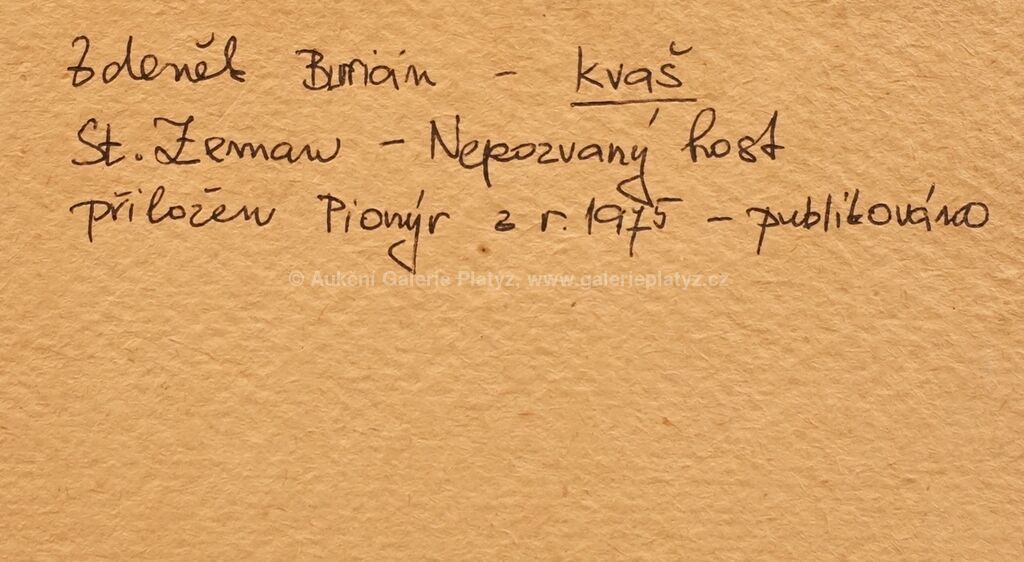 Zdeněk Burián - kvaš
St. Zeman - Nepozvaný host
přiložen Pionýr z r. 1975 - publikováno
© Aukční Galerie Platýz, www.galerieplatyz.cz